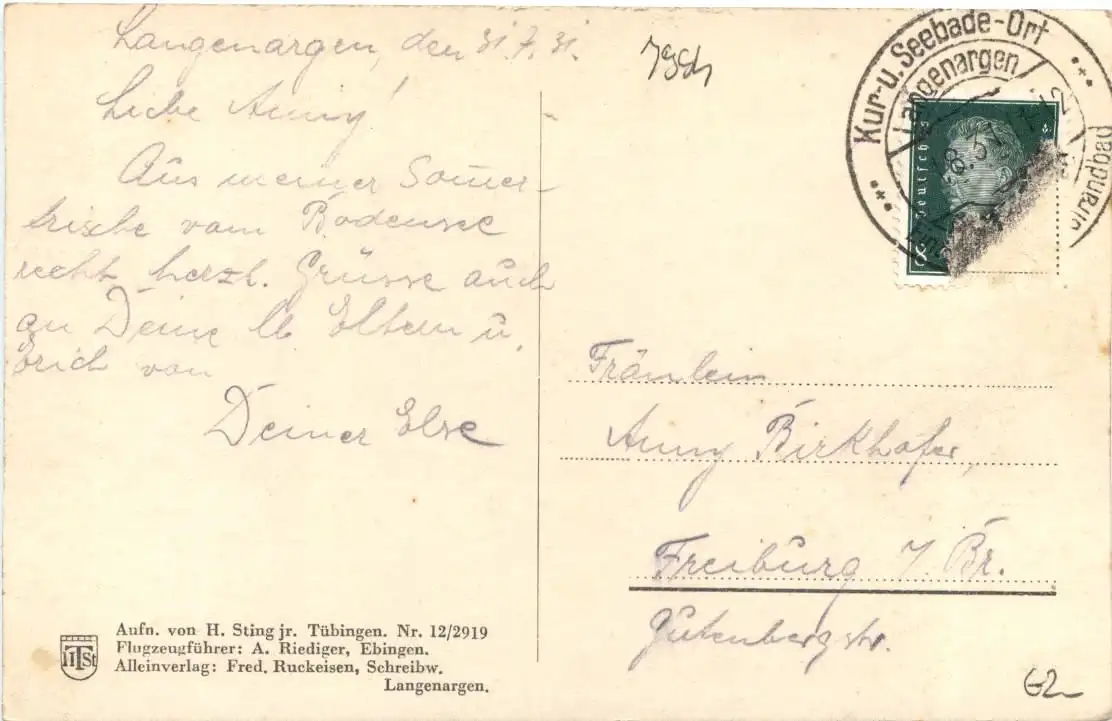 Langenargen, den 31.7.31.
Liebe Anny!
Aus meiner Somer-
frische vom Bodensee
recht herzl. Grüsse auch
an Deine lb. Eltern u.
Erich von
Deiner Else
Kur-u. Seebade-Ort
Langenargen
Strandbad
Deutsches
Fräulein
Anny Birkhofer,
Freiburg i/Br.
Gutenbergstr.
HSt
Aufn. von H. Sting jr. Tübingen. Nr. 12/2919
Flugzeugführer: A. Riediger, Ebingen.
Alleinverlag: Fred. Ruckeisen, Schreibw.
Langenargen.